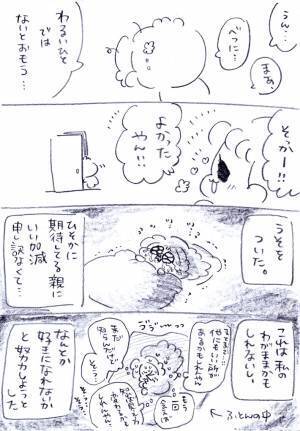 うん…
まあ、
べつに…
わるいひと
では
ないとおもう…
そっかー!!
よかった
やん!!
うそを
ついた。
ひそかに
期待してる親に
いい加減
申し訳なくて…
これは私の
わがままかも
しれないし、
ブブ…
他にもいい所が
あるかもしれんやん
まだ
知らんだけで…
そう…
もう一回
会えば
変わるかも
しれん…
なんとか
好きになれないか
と努力しようと
した
ふとんの中